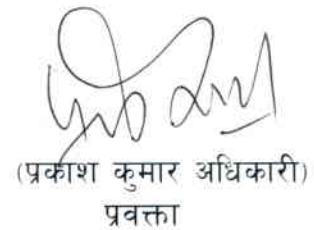 (प्रकाश कुमार अधिकारी)
प्रवक्ता